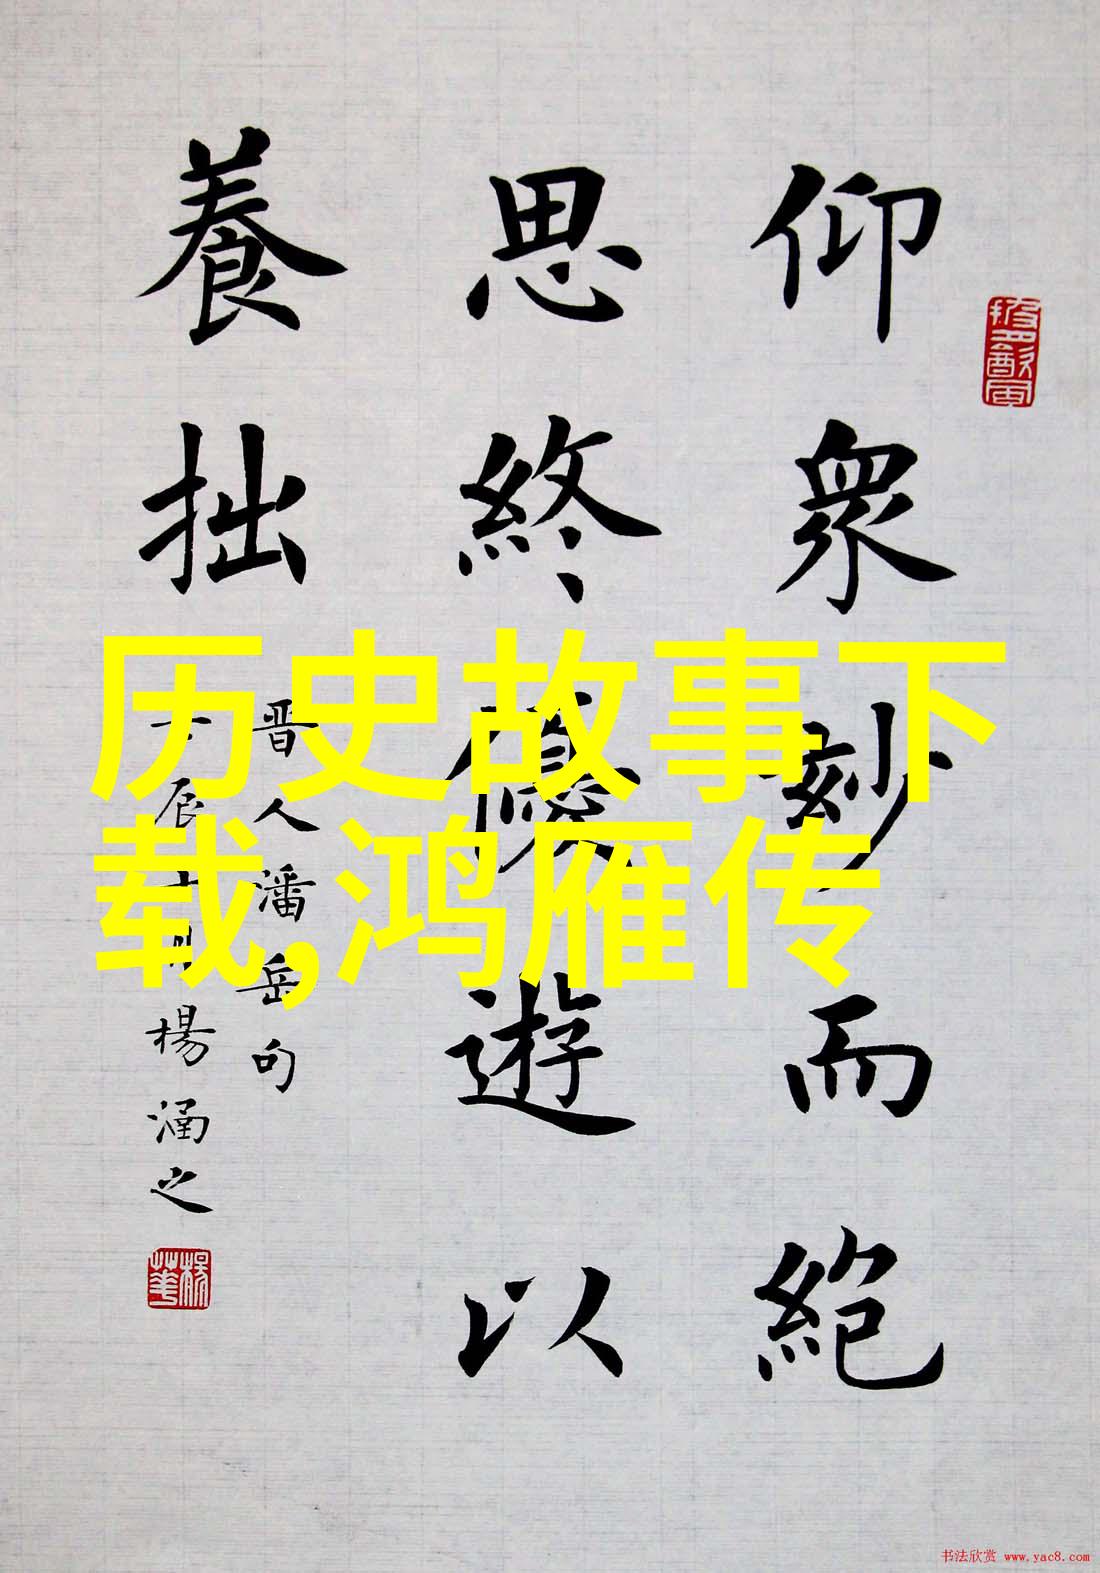 仰衆妙而絶
思終優遊以
養拙
晋人潘岳句
壬辰十月楊涵之
历史故事下
载,鸿雁传
书法欣赏 www.yac8.com